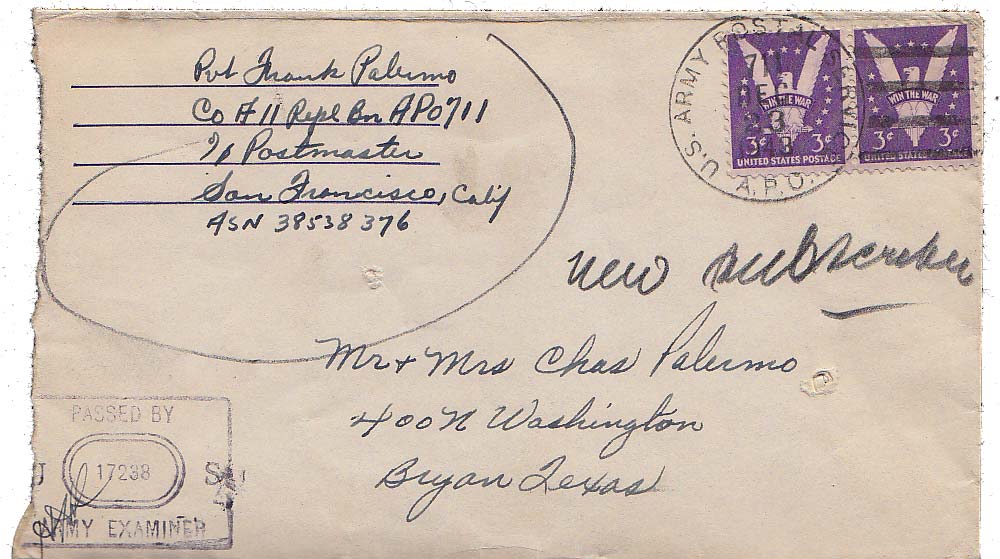 Pvt Frank Palermo
Co A 11 Repl Bn APO 711
c/o Postmaster
San Francisco, Calif
ASN 38538376
U.S. ARMY POSTAL SERVICE
711
DEC
23
A.P.O.
WIN THE WAR
3¢ 3¢
UNITED STATES POSTAGE
WIN THE WAR
3¢ 3¢
UNITED STATES POSTAGE
new subscriber
Mr + Mrs Chas Palermo
400 N Washington
Bryan Texas
PASSED BY
U 17238 S
ARMY EXAMINER